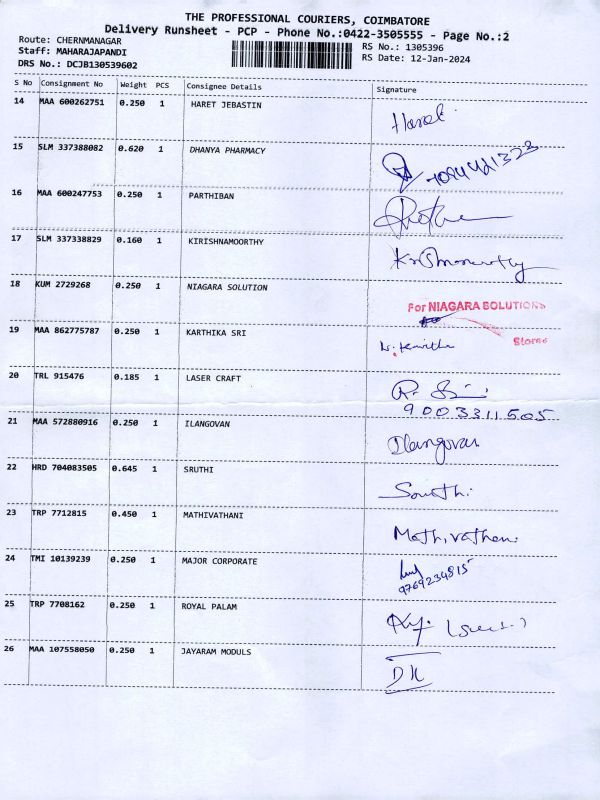 THE PROFESSIONAL COURIERS, COIMBATORE
Delivery Runsheet - PCP - Phone No.:0422-3505555 - Page No.:2
Route: CHERNMANAGAR
RS No.: 1305396
Staff: MAHARAJAPANDI
RS Date: 12-Jan-2024
DRS No.: DCJB130539602
S No Consignment No Weight PCS Consignee Details Signature
14 MAA 600262751 0.250 1 HARET JEBASTIN
15 SLM 337388082 0.620 1 DHANYA PHARMACY 7094421323
16 MAA 600247753 0.250 1 PARTHIBAN
17 SLM 337338829 0.160 1 KIRISHNAMOORTHY
18 KUM 2729268 0.250 1 NIAGARA SOLUTION
For NIAGARA SOLUTIONS
19 MAA 862775787 0.250 1 KARTHIKA SRI
Stores
20 TRL 915476 0.185 1 LASER CRAFT
9003311505
21 MAA 572880916 0.250 1 ILANGOVAN Ilangovan
22 HRD 704083505 0.645 1 SRUTHI
23 TRP 7712815 0.450 1 MATHIVATHANI
24 TMI 10139239 0.250 1 MAJOR CORPORATE
9769234815
25 TRP 7708162 0.250 1 ROYAL PALAM
26 MAA 107558050 0.250 1 JAYARAM MODULS